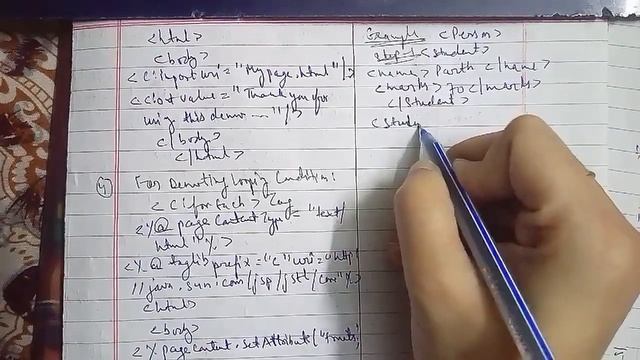 <html>
<body>
<c:import uri="Mypage.html"/>
<c:out value="Thank you for
using this demo ---"/>
</body>
</html>
4) For Demoting Looping Condition:
<c:forEach> Tag
<%@ page contentType="text/
html"%>
<%@ taglib prefix="c" uri="http
://java.sun.com/jsp/jstl/core"%>
<html>
<body>
<% pageContext.setAttribute("
Example <Person>
Step-1 <student>
<name> Parth </name>
<marks> 70 </marks>
</student>
<Stude